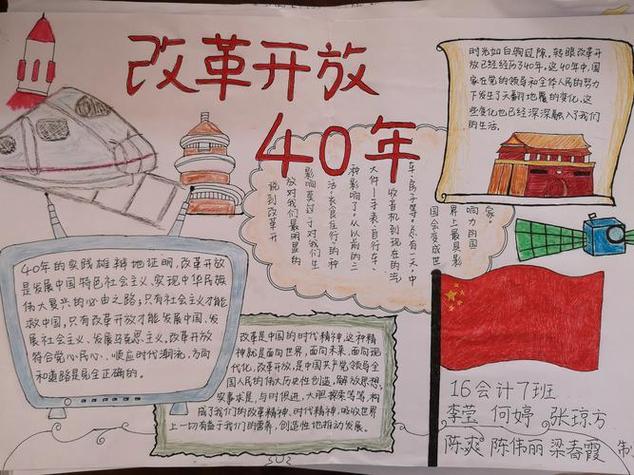 改革开放
40年
时光如白驹过隙,转眼改革开
放已经经历了40年。这40年中,国
家在党的领导和全体人民的努力
下发生了天翻地覆的变化。这
些变化也已经深深融入了我们
的生活。
说到改革开
放对我们最明显的
影响莫过于对我们生
活:衣食住行的种
种影响了。从以前的三
大件—手表、自行车、
收音机到现在的洗
车、房子等。总有一天,中
国会变成世
界上最具影
响力的国
家。
40年的实践雄辩地证明,改革开放
是发展中国特色社会主义、实现中华民族
伟大复兴的必由之路,只有社会主义才能
救中国,只有改革开放才能发展中国、发
展社会主义、发展马克思主义。改革开放
符合党心民心、顺应时代潮流,方向
和道路是完全正确的。
改革是中国的时代精神,这种精
神就是面向世界,面向未来,面向现
代化。改革开放,是中国共产党领导全
国人民的伟大历史性创造,解放思想,
实事求是,与时俱进,大胆探索等等,构
成了我们的改革精神,时代精神,吸收世界
上一切有益于我们的营养,创造性地推动发展。
16会计7班
李莹 何婷 张琼方
陈爽 陈伟丽 梁春霞 制